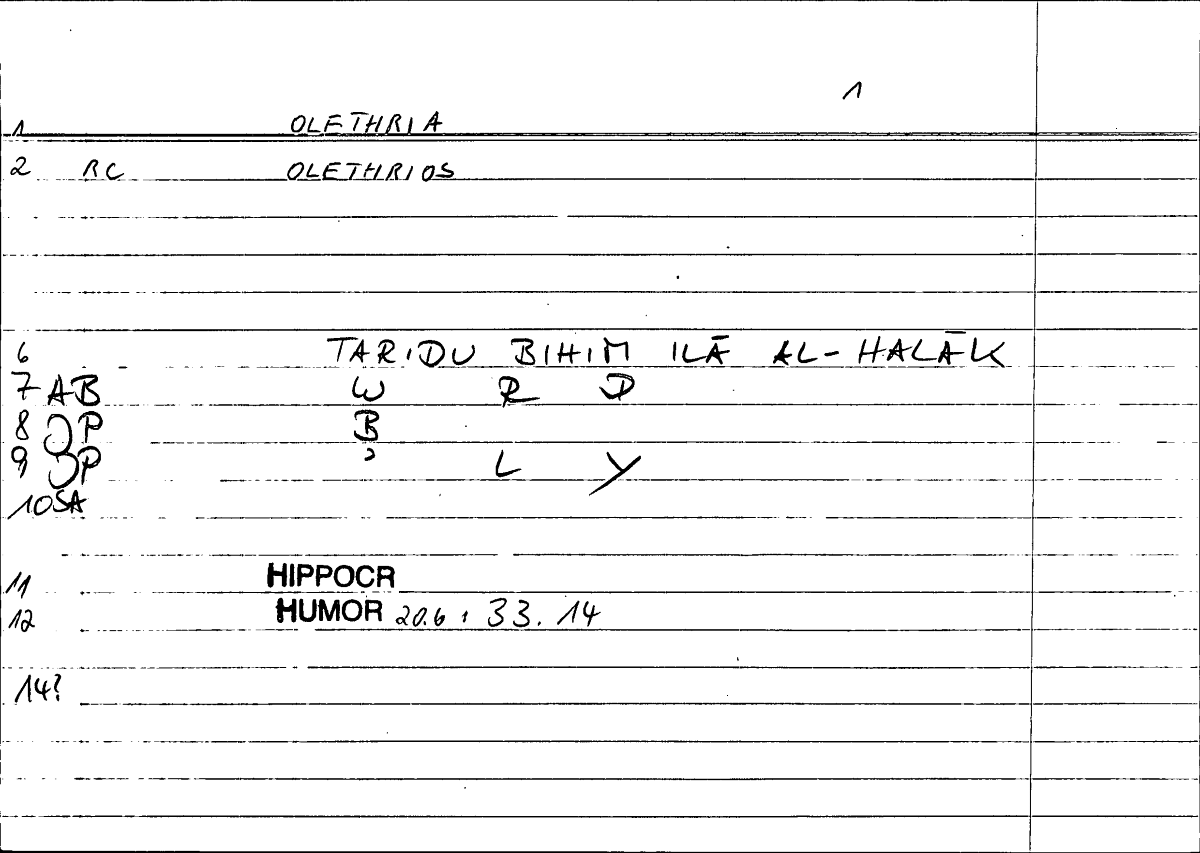 1
1 OLETHRIA
2 RC OLETHRIOS
6 TARIDU BIHIM ILĀ AL-HALĀK
7 AB W R D
8 JP B
9 JP ʾ L Y
10 SA
11 HIPPOCR
12 HUMOR 20.6, 33.14
14?